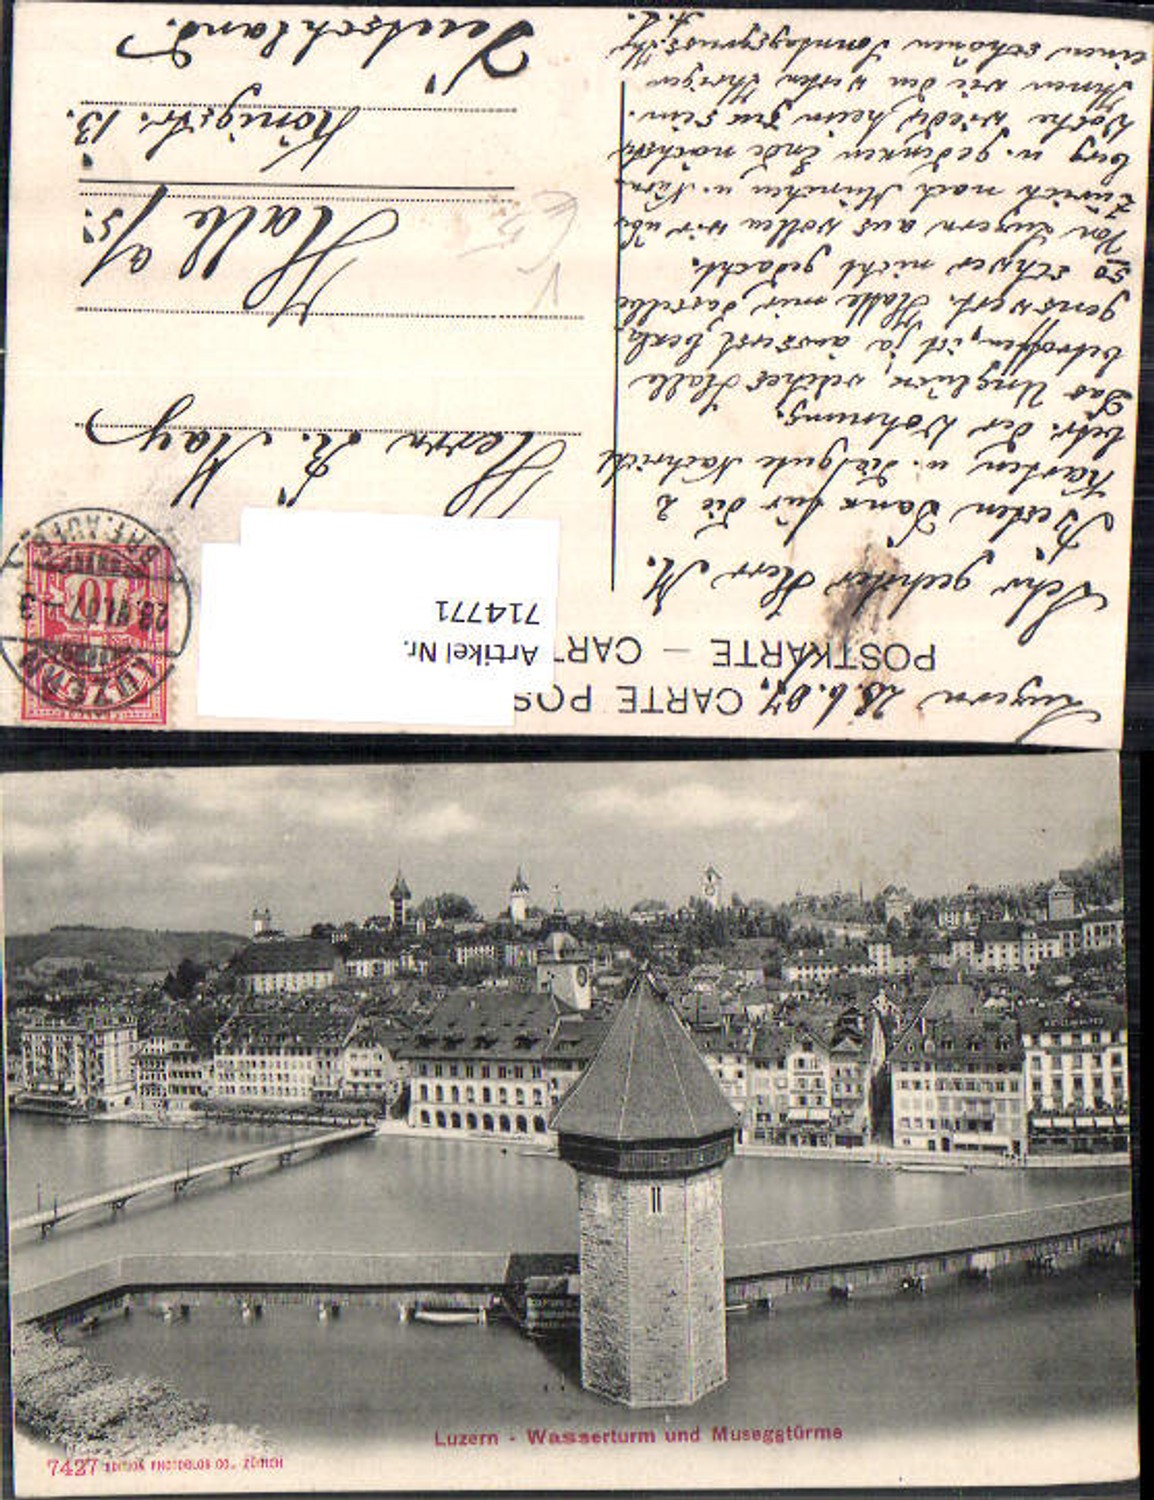 CARTE POS
POSTKARTE – CART
Artikel Nr.
714771
LUZERN
28.VI.07 – 3
BRF. AUFG.
10
Luzern 28.6.07.
Sehr geehrter Herr M.
Besten Dank für die 2
Karten u. die gute Nachricht
betr. der Wohnung.
Das Unglück, welches Halle
betroffen, ist ja äusserst
Halle mir
so schwer nicht gedacht.
Von Luzern aus wollen wir über
Zürich nach München u. Nürn-
berg u. gedenken Ende nächster
Woche wieder heim zu sein.
Ihnen wie den werten Ihrigen
einen schönen Sonntagsgruss
Herrn R. May
Halle a/S.
Königstr. 13.
Deutschland.
Luzern - Wasserturm und Museggstürme
7427 EDITION PHOTOGLOB CO., ZÜRICH